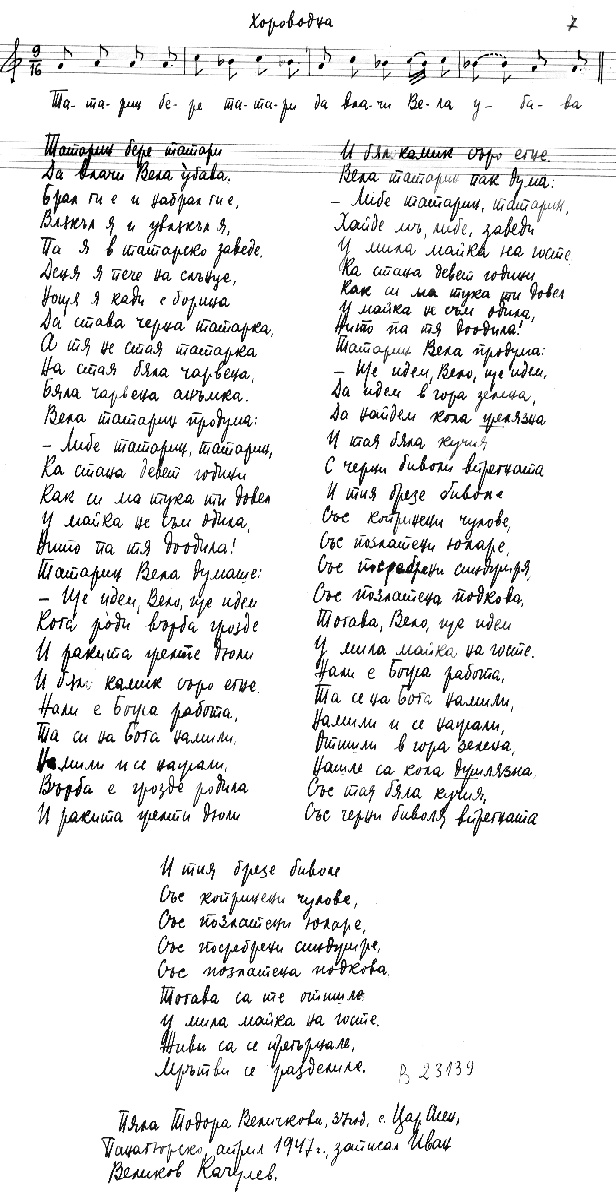 Хороводна
7
9
16
Та-та-рин бе-ре та-та-ри да вла-чи Ве-ла у-ба-ва
Татарин бере татари
Да влачи Вела убава.
Брал ги е и набрал ги е,
Влякъл я и увлякъл я,
Па я в татарско заведе,
Деня я пече на слънце,
Нощя я кади с борина
Да става черна татарка,
А тя не стая татарка
На стая бяла чарвена,
Бяла чарвена анъмка.
Вела татарин продума:
– Либе татарин, татарин,
Ка стана девет години
Как си ма тука ти довел
У майка не съм одила,
Нито па тя доодила!
Татарин Вела думаше:
– Ще идем, Вело, ще идем
Кога роди върба грозде
И ракита жълте дюли
И бял камик съро егне.
Нали е Божа работа,
Та си на Бога намили,
Намили и се нажали,
Върба е грозде родила
И ракита жълти дюли
И бял камик съро егне.
Вела татарин пак дума:
– Либе татарин, татарин,
Хайде мъ, либе, заведи
У мила майка на госте.
Ка стана девет години
Как си ма тука ти довел
У майка не съм одила,
Нито па тя доодила!
Татарин Вела продума:
– Ще идем, Вело, ще идем,
Да идем в гора зелена,
Да найдем кола желязна
И тая бяла кучия
С черни биволи впрегната
И тия брезе биволе
Със копринени чулове,
Със позлатени юларе,
Със посребрени синджиря,
Със позлатена подкова,
Тогава, Вело, ще идем
У мила майка на госте.
Нали е Божа работа,
Та се на Бога намили,
Намили и се нажали,
Отишли в гора зелена,
Нашле са кола
Със тая бяла кучия,
Със черни биволя впрегната
И тия брезе биволе
Със копринени чулове,
Със позлатени юларе,
Със посребрени синджире,
Със позлатена подкова.
Тогава са те отишле
У мила майка на госте.
Живи са се прегърнале,
Мрътви се разделиле.
В 23139
Пяла Тодора Величкова, 37 год., с. Цар Асен,
Панагюрско, април 1947 г., записал Иван
Великов Качулев.